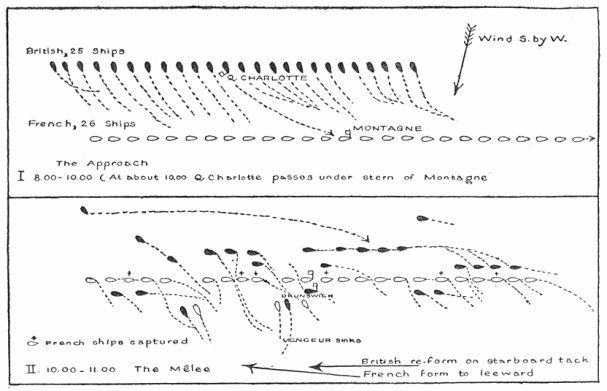 British, 25 Ships
Wind S. by W.
Q. CHARLOTTE
French, 26 Ships
MONTAGNE
The Approach
I 8.00-10.00 (At about 10.00 Q. Charlotte passes under stern of Montagne
BRUNSWICH
VENGEUR SINKS
French ships captured
British re-form on starboard tack
II. 10.00-11.00 The Mêlee
French form to leeward